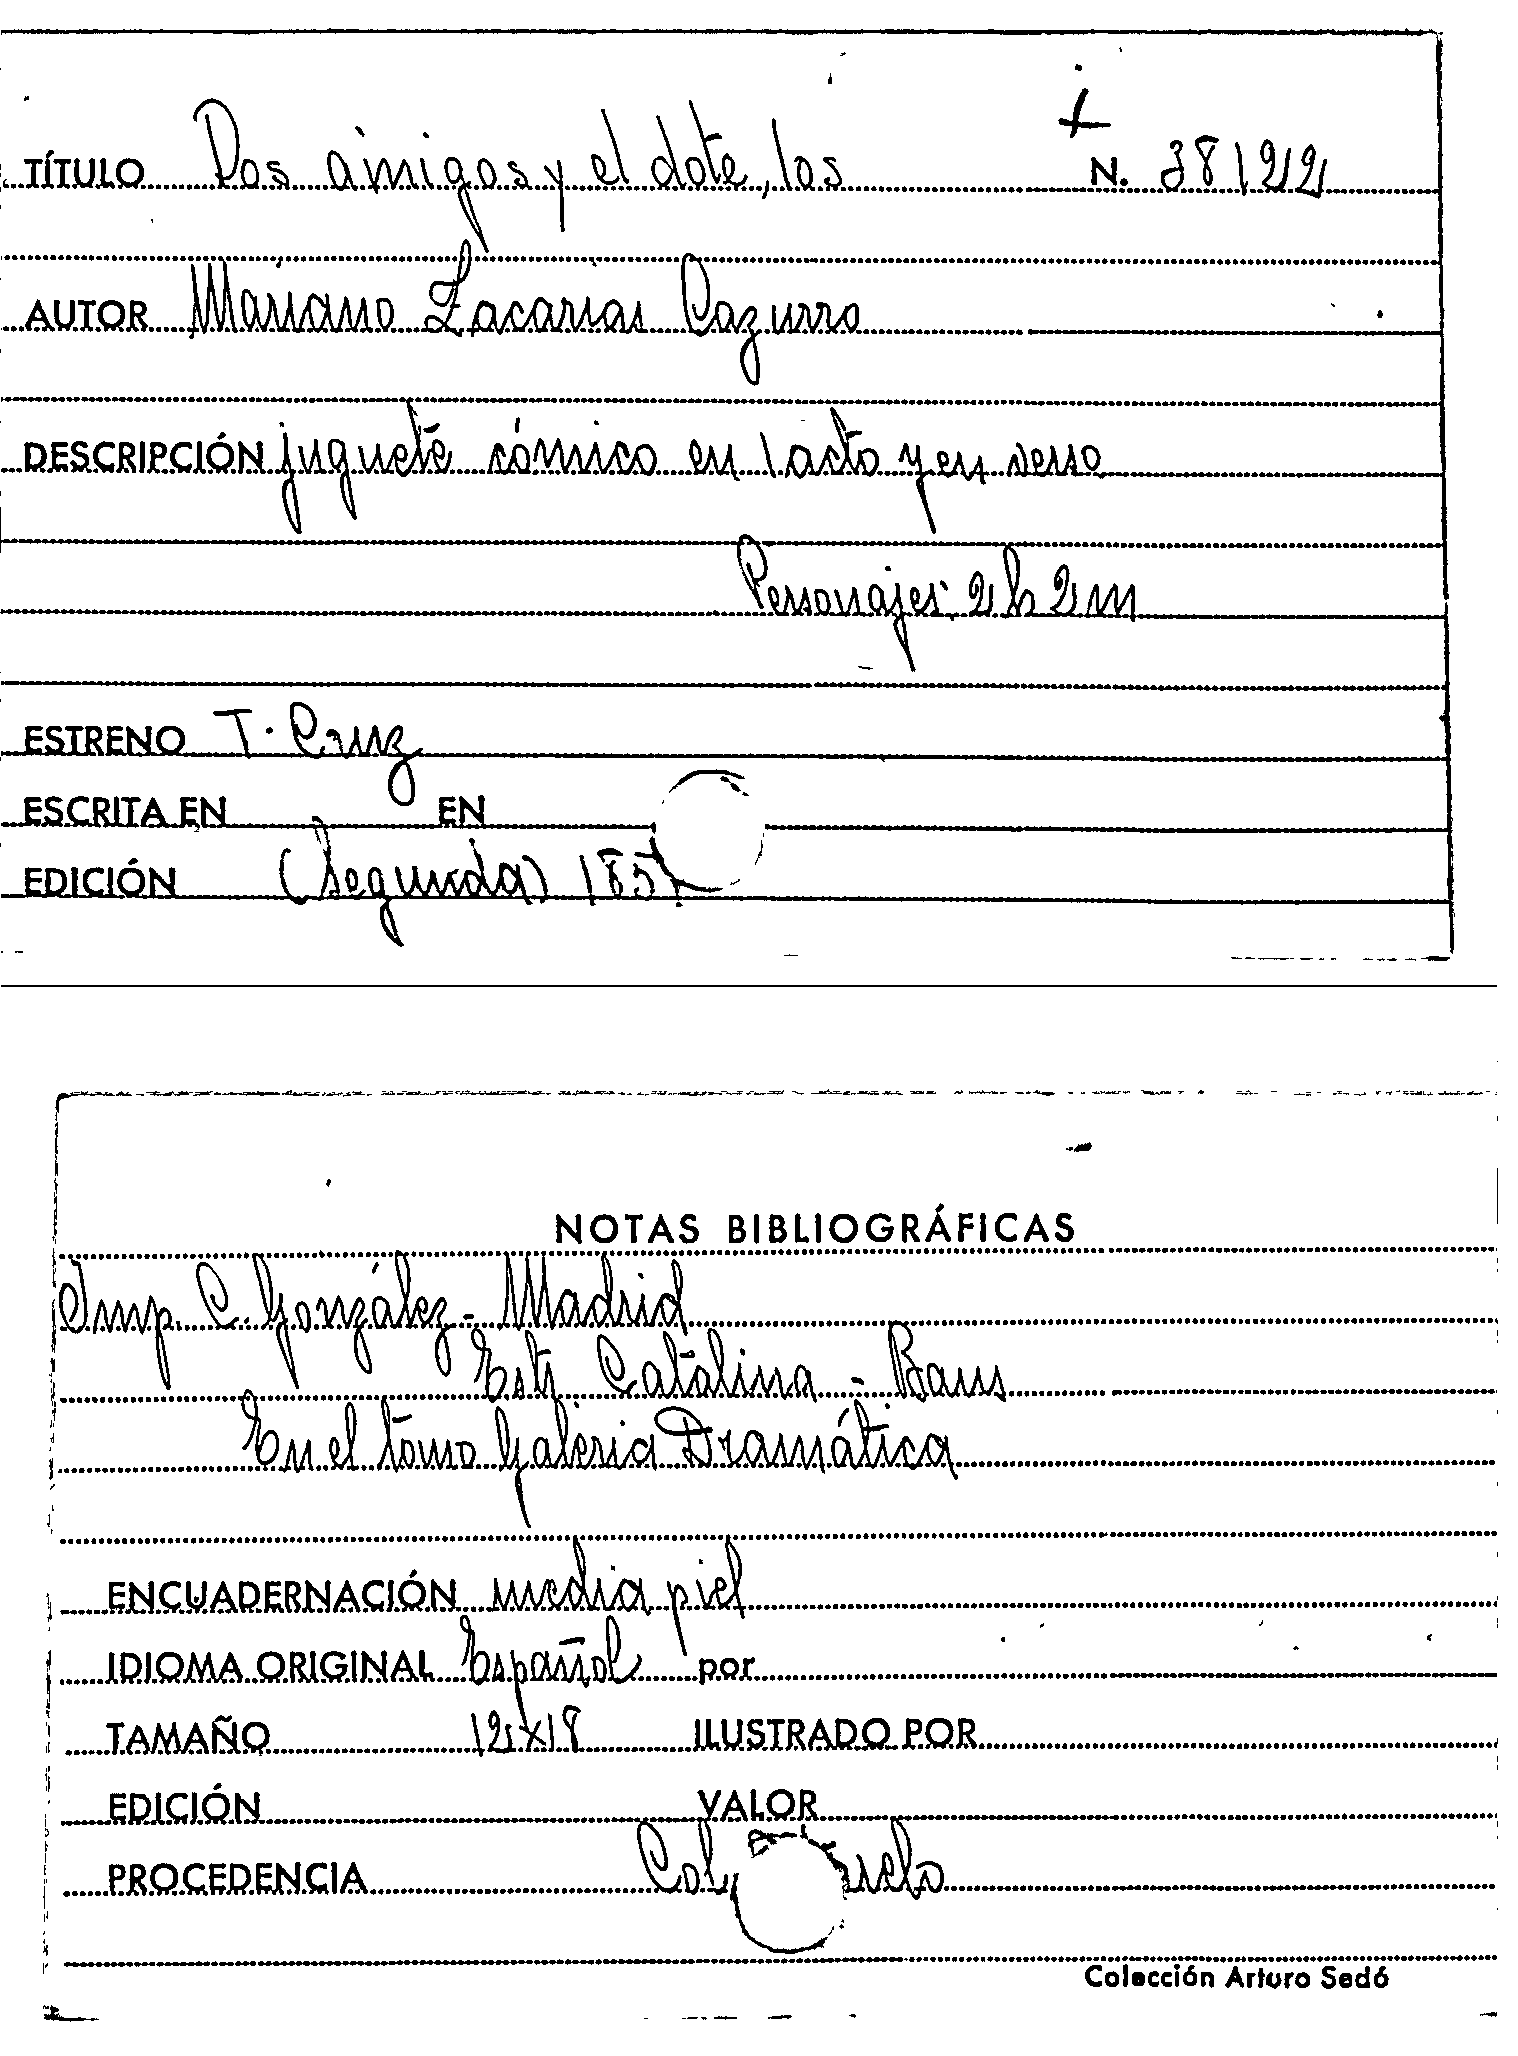 TÍTULO Dos amigos y el dote, los N. 38122
AUTOR Mariano Zacarias Cazurro
DESCRIPCIÓN juguete cómico en 1 acto y en verso
Personajes: 2 h 2 m
ESTRENO T. Cruz
ESCRITA EN EN
EDICIÓN (Segunda)
NOTAS BIBLIOGRÁFICAS
Imp. C. González - Madrid
Estr Catalina - Baus
En el tomo Galeria Dramática
ENCUADERNACIÓN media piel
IDIOMA ORIGINAL Español por
TAMAÑO 12x18 ILUSTRADO POR
EDICIÓN VALOR
PROCEDENCIA Col
Colección Arturo Sedó